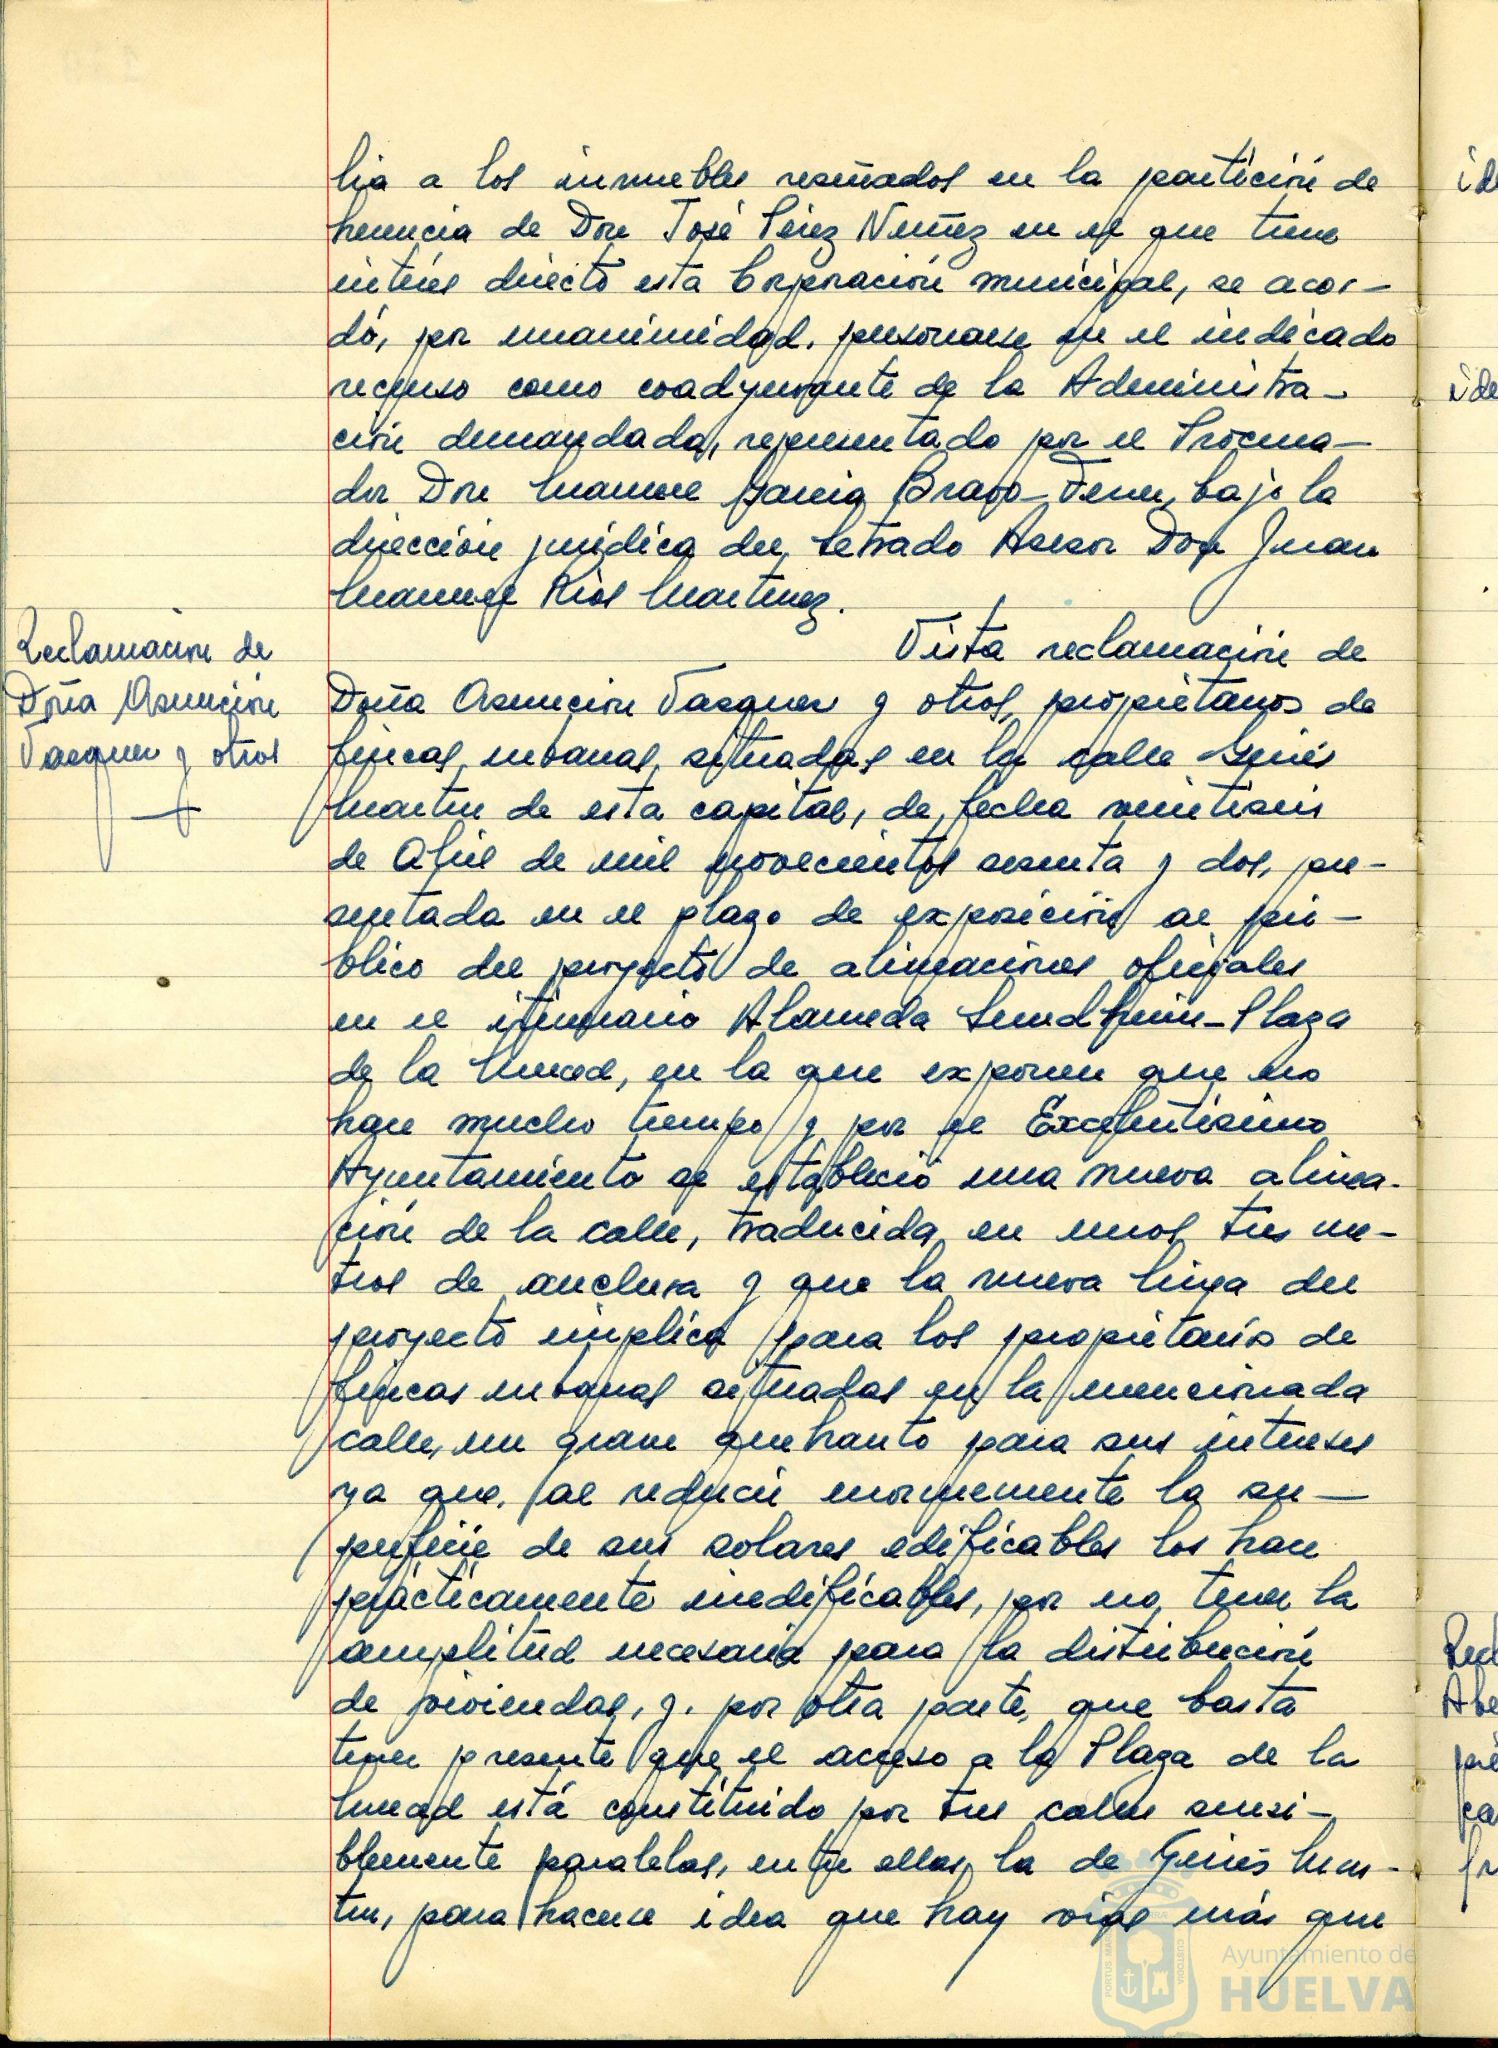 lia a los inmuebles reseñados en la partición de
herencia de Don José Pérez Núñez en el que tiene
interés directo esta Corporación municipal, se acor-
dó, por unanimidad, personarse en el indicado
recurso como coadyuvante de la Administra-
ción demandada, representado por el Procura-
dor Don Manuel García Bravo-Ferrer, bajo la
dirección jurídica del Letrado Asesor Don Juan
Manuel Ríos Martínez.
Reclamación de
Doña Asunción
Vasquez y otros
Vista reclamación de
Doña Asunción Vasquez y otros, propietarios de
fincas urbanas, situadas en la calle Ginés
Martín de esta capital, de fecha veintiseis
de Abril de mil novecientos sesenta y dos, pre-
sentada en el plazo de exposición al pú-
blico del proyecto de alineaciones oficiales
en el itinerario Alameda Sundheim-Plaza
de la Merced, en la que exponen que no
hace mucho tiempo y por el Excelentísimo
Ayuntamiento se estableció una nueva alinea-
ción de la calle, traducida en unos tres me-
tros de anchura y que la nueva línea del
proyecto implica para los propietarios de
fincas urbanas situadas en la mencionada
calle, un grave quebranto para sus intereses
ya que, al reducir enormemente la su-
perficie de sus solares edificables los hace
prácticamente inedificables, por no tener la
amplitud necesaria para la distribución
de viviendas, y, por otra parte, que basta
tener presente que el acceso a la Plaza de la
Merced está constituido por tres calles sensi-
blemente paralelas, entre ellas, la de Ginés Mar-
tín, para hacerse idea que hay vías más que
Ayuntamiento de
HUELVA